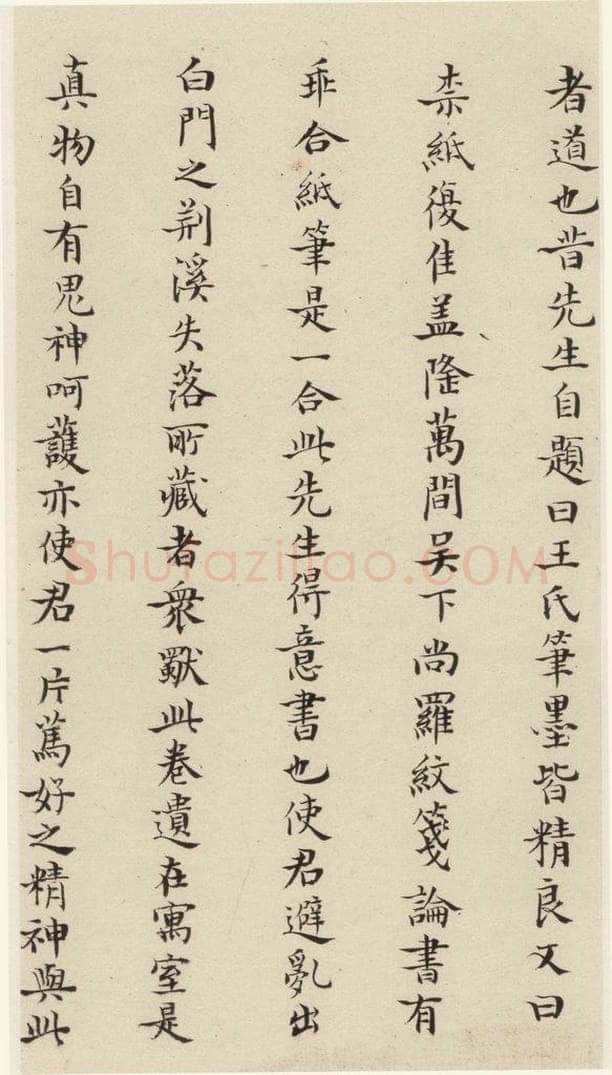 者道也昔先生自題曰王氏筆墨皆精良又曰
柰紙復佳蓋隆萬間吴下尚羅紋箋論書有
乖合紙筆是一合此先生得意書也使君避亂出
白門之荆溪失落所藏者衆獸此卷遺在寓室是
真物自有鬼神呵護亦使君一片篤好之精神與此
Shufaziliao.COM